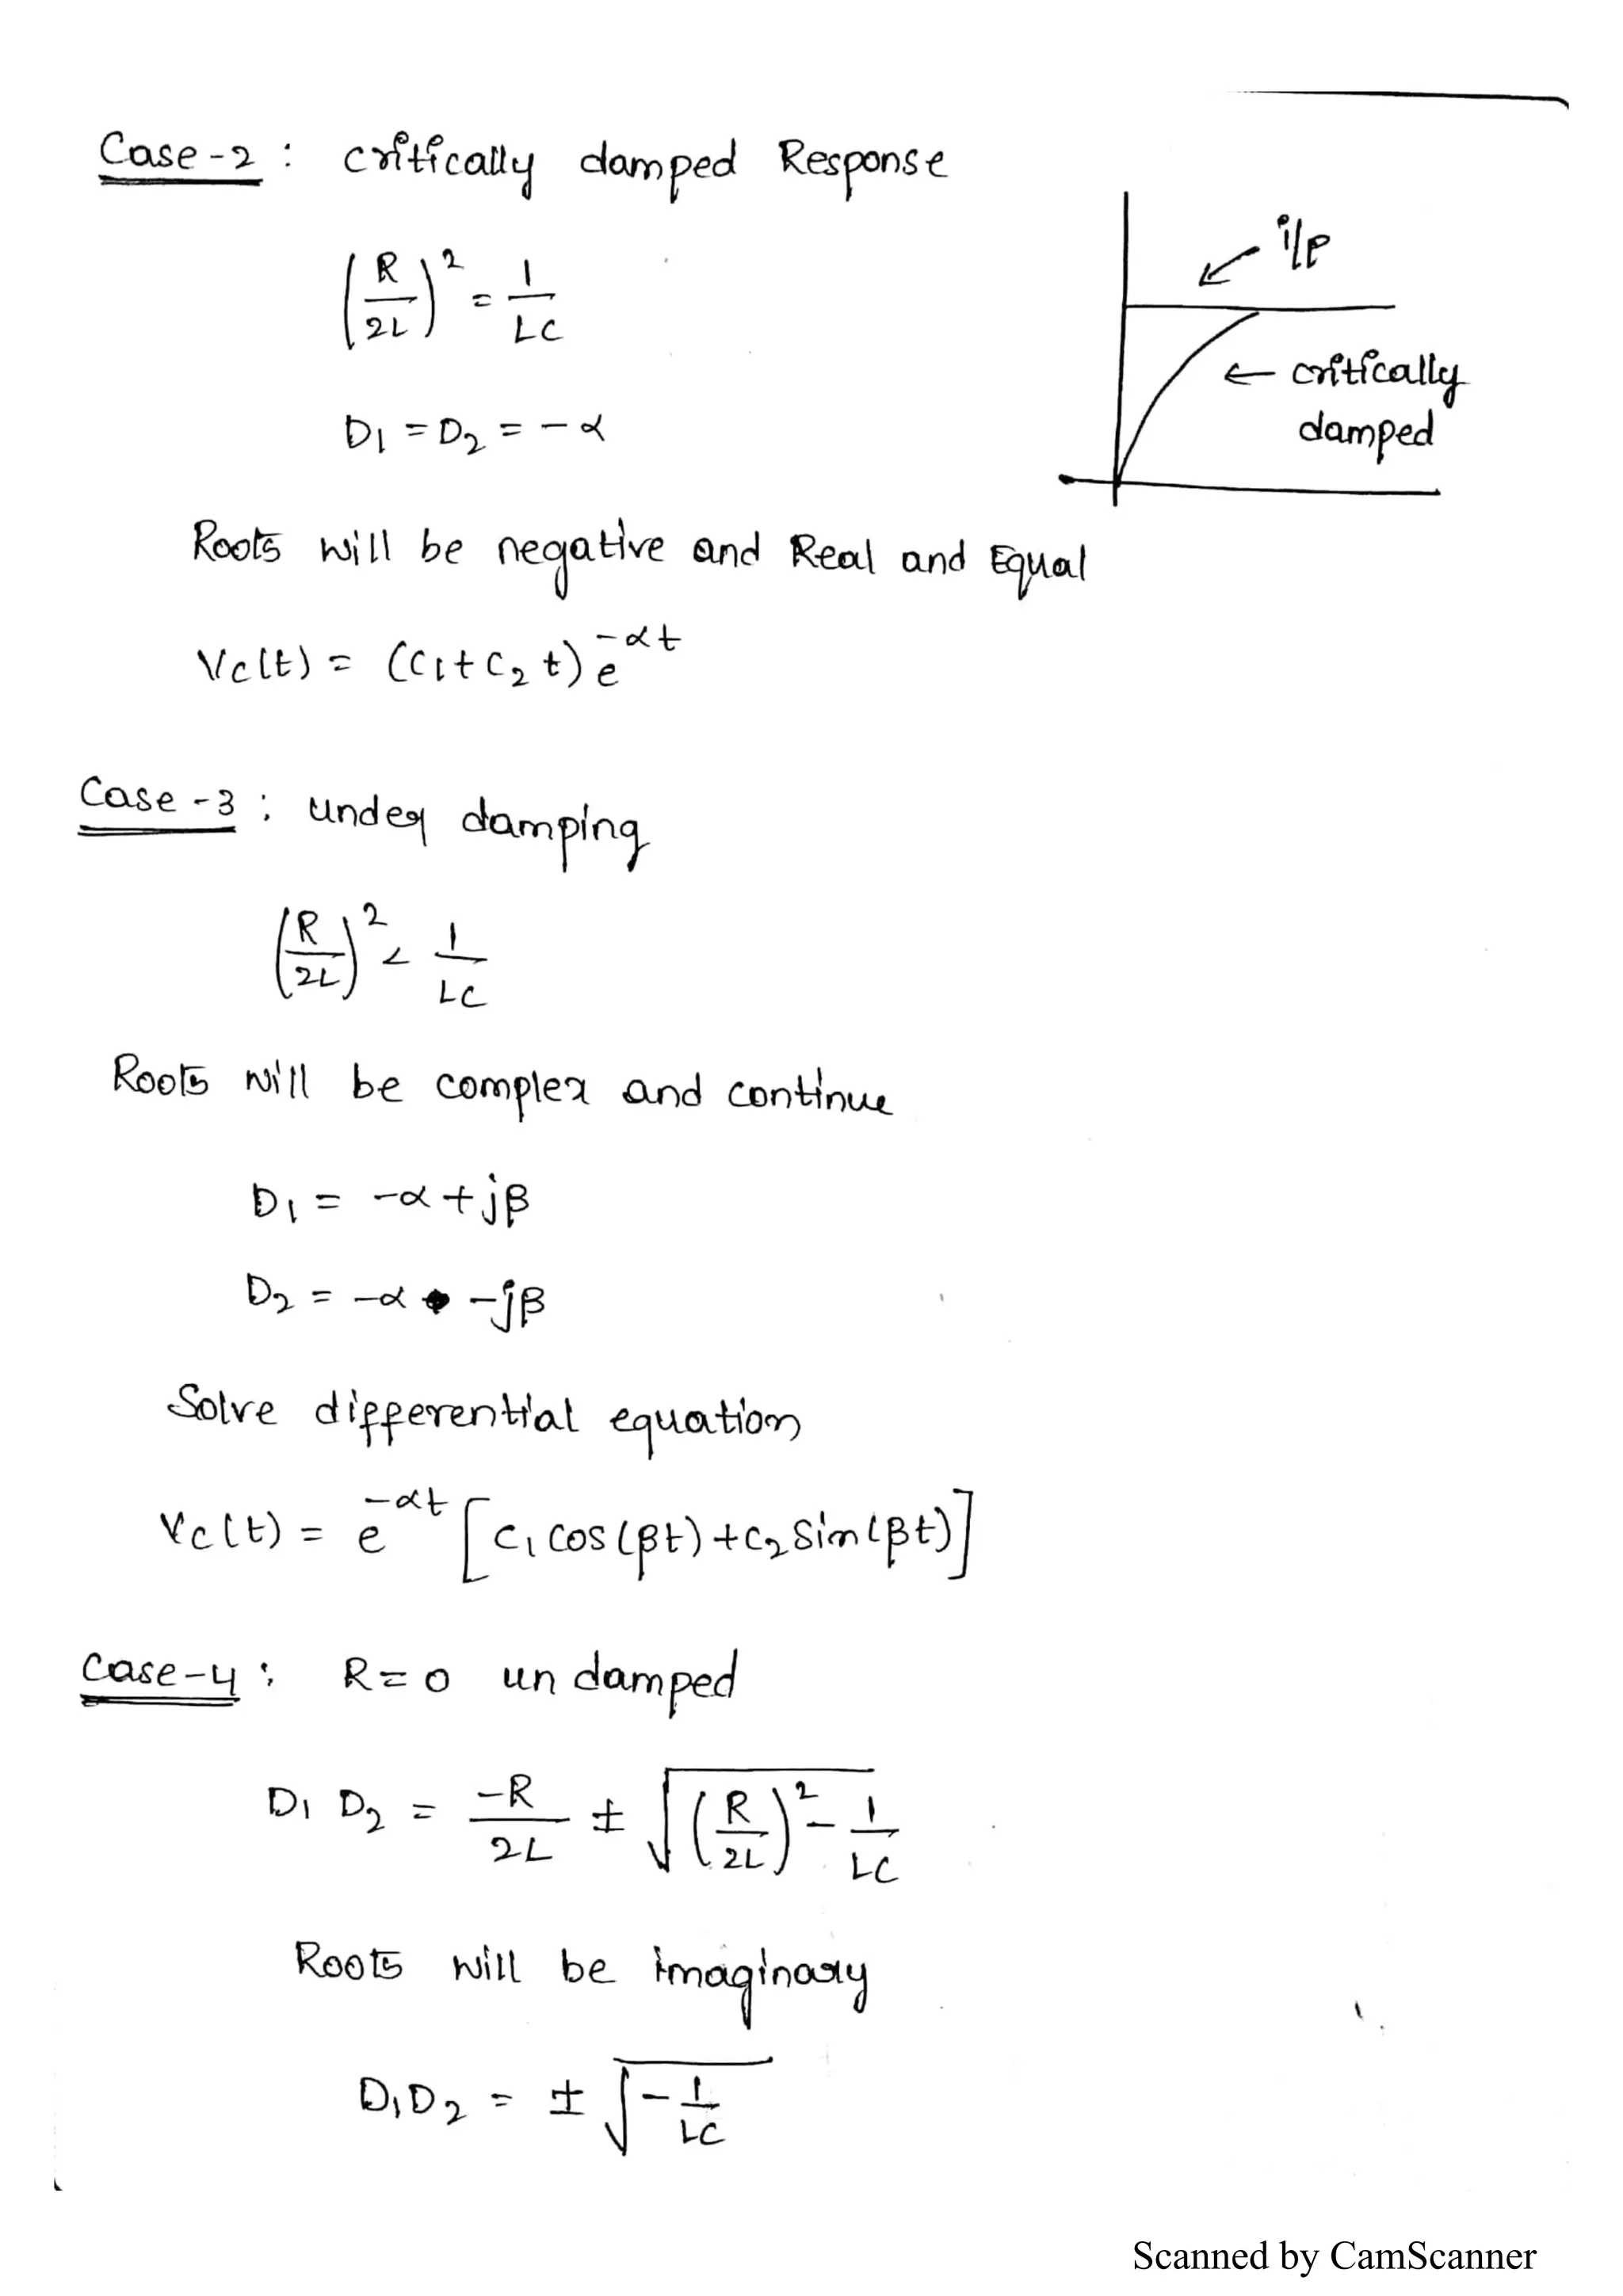 Case-2 : critically damped Response
i/p
(R/2L)² = 1/LC
← critically
damped
D1 = D2 = -α
Roots will be negative and Real and Equal
Vc(t) = (C1+C2 t) e^-αt
Case-3 : under damping
(R/2L)² < 1/LC
Roots will be complex and continue
D1 = -α + jβ
D2 = -α -jβ
Solve differential equation
Vc(t) = e^-αt [C1 cos(βt) + C2 Sin(βt)]
Case-4 : R=0 un damped
D1 D2 = -R/2L ± √((R/2L)² - 1/LC)
Roots will be imaginary
D1D2 = ± √(-1/LC)
Scanned by CamScanner